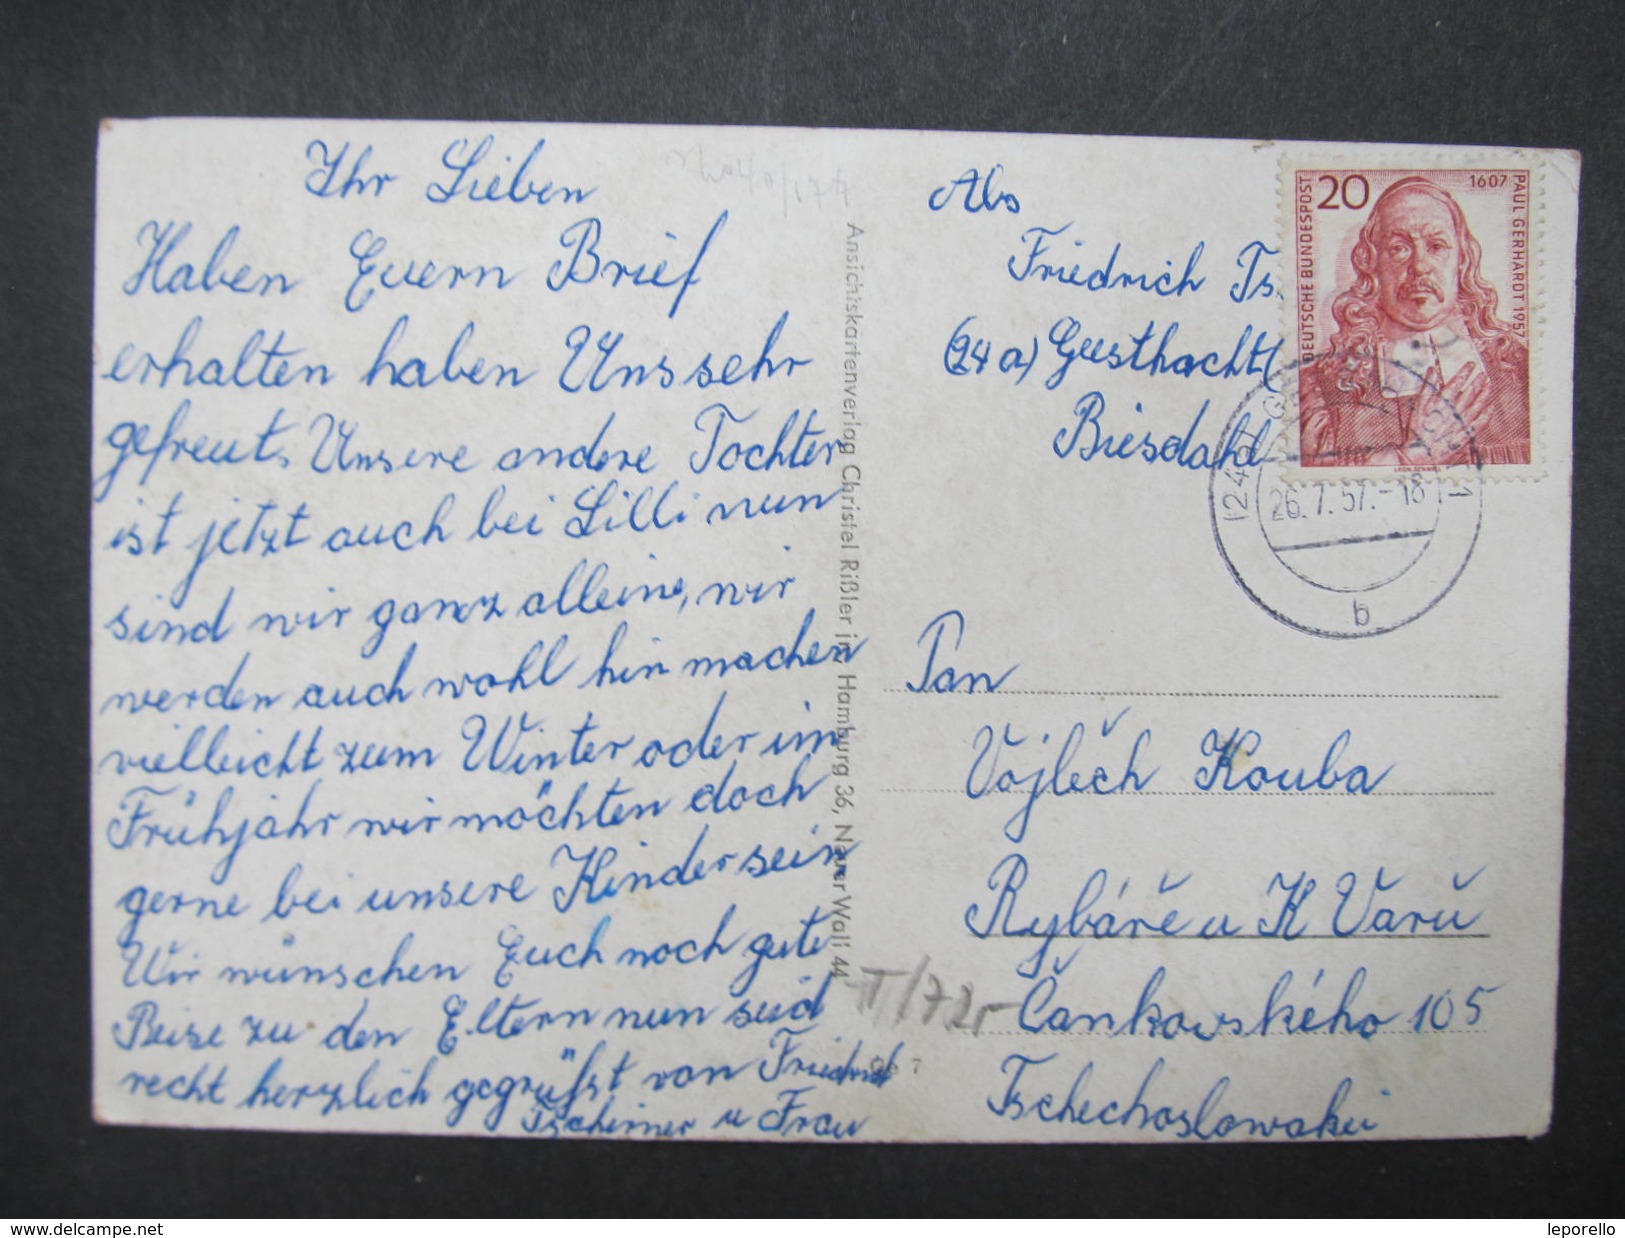 Ihr Lieben
Haben Euern Brief
erhalten haben Uns sehr
gefreut. Unsere andere Tochter
ist jetzt auch bei Lilli nun
sind wir ganz alleine, wir
werden auch wohl hin machen
vielleicht zum Winter oder im
Frühjahr wir möchten doch
gerne bei unsere Kinder sein
Wir wünschen Euch noch gute
Reise zu den Eltern nun seid
recht herzlich gegrüßt von Friedrich
Tschirner u Frau
Ansichtskartenverlag Christel Rißler in Hamburg 36, Neuer Wall 44
Abs
Friedrich Ts.
(24a) Geesthacht
Biesdahl
DEUTSCHE BUNDESPOST
20
1607
PAUL GERHARDT 1957
26.7.57.-18
b
Pan
Vojtěch Kouba
Rybáře u K Varů
Čankovského 105
Tschechoslowakei
www.delcampe.net
leporello